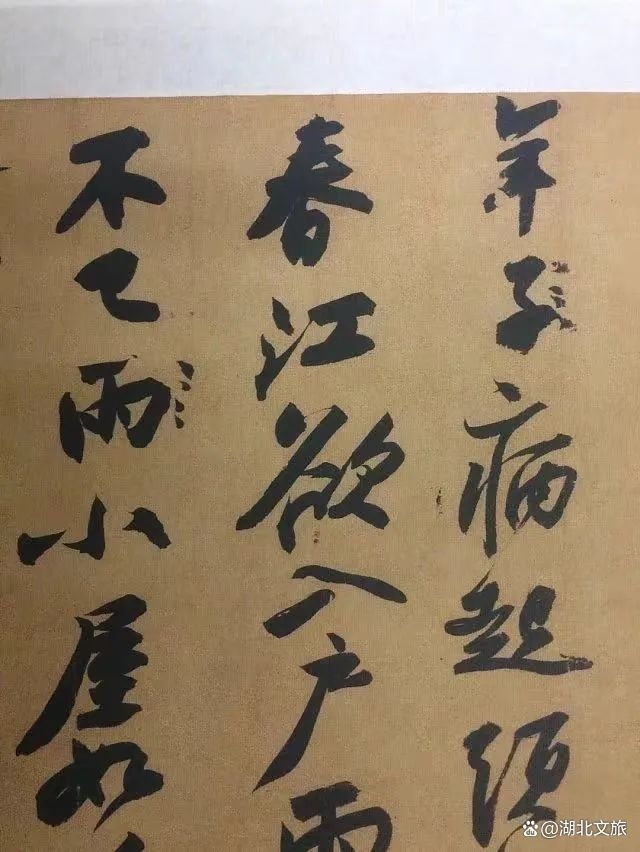 年子病起須
春江欲入戶雨
不已雨小屋如
@湖北文旅